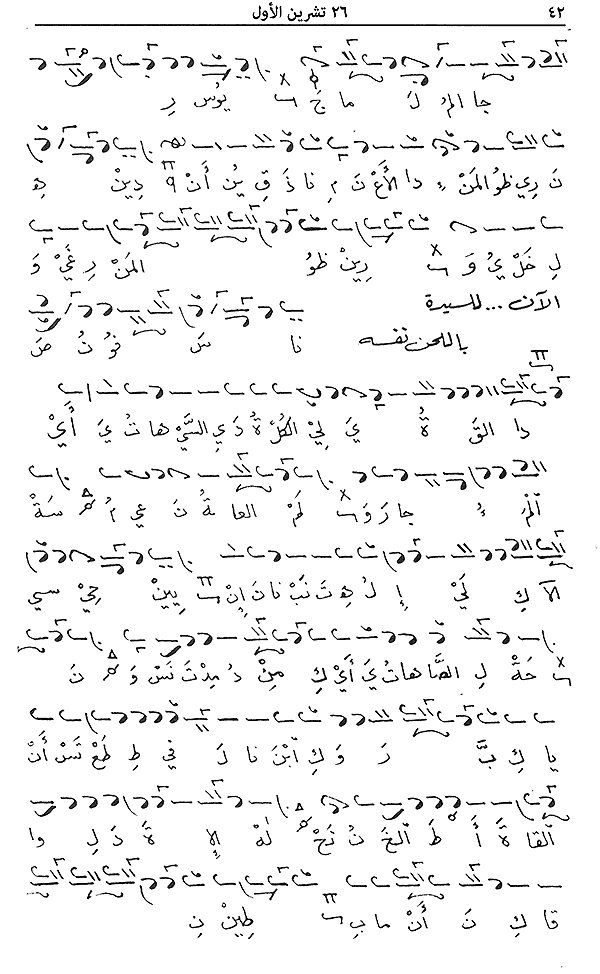 ٤٢ ٢٦ تشرين الأول
جا المُ لَ ما جَ يوُس رِ
نَ رِي ظوُ المَنْ ءِ دا الأَعْ نَ مِ نا ذَ قِ يُن أَنْ دِينْ هِ
لِ خَلْ يُ وَ رِينْ ظوُ المَنْ رِ غَيْ وَ
الآن ... للسيدة
باللحن نفسه نا سَ فوُ نُ صَ
دا القَ ةُ يَ لِيْ الكُلْ ةُ دَ يِ السَّيْ ها تُ يَ أَيْ
آلْمُ ءِ جا رَ وَ لَمْ العا ةُ نَ عي مُ سَةْ
الآ كِ لَيْ إِ لُ هِ تَ نَبْ نا نَ إِنْ يِينْ حِيْ سي
حَةْ لِ الصَّا ها تُ يَ أَيْ كِ مِنْ دُ مِدْ تَ نَسْ وَ نَ
يا كِ بَّ رَ وَ كِ آبْنَ نا لَ في طِ طَعْ تَسْ أَنْ
آلْقا ةَ أَ طَ آلْخَ نُ نَحْ لَهْ الإِ ةَ دَ لِ وا
قا كِ نَ أَنْ ما بِ طِينْ نِ